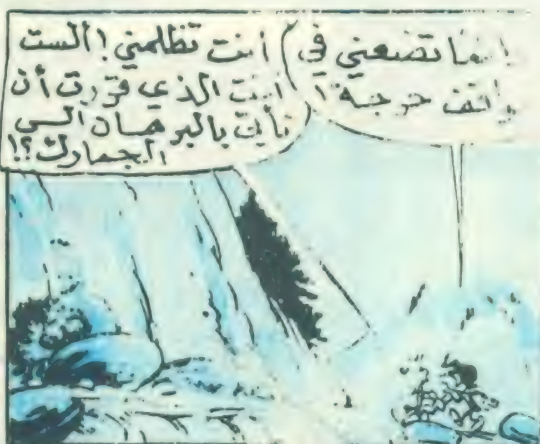 تضعني في
حرجة!
أنت تظلمني! ألست
أنت الذي قررت أن
نأتي بالبرهان الى
الجمارك؟!